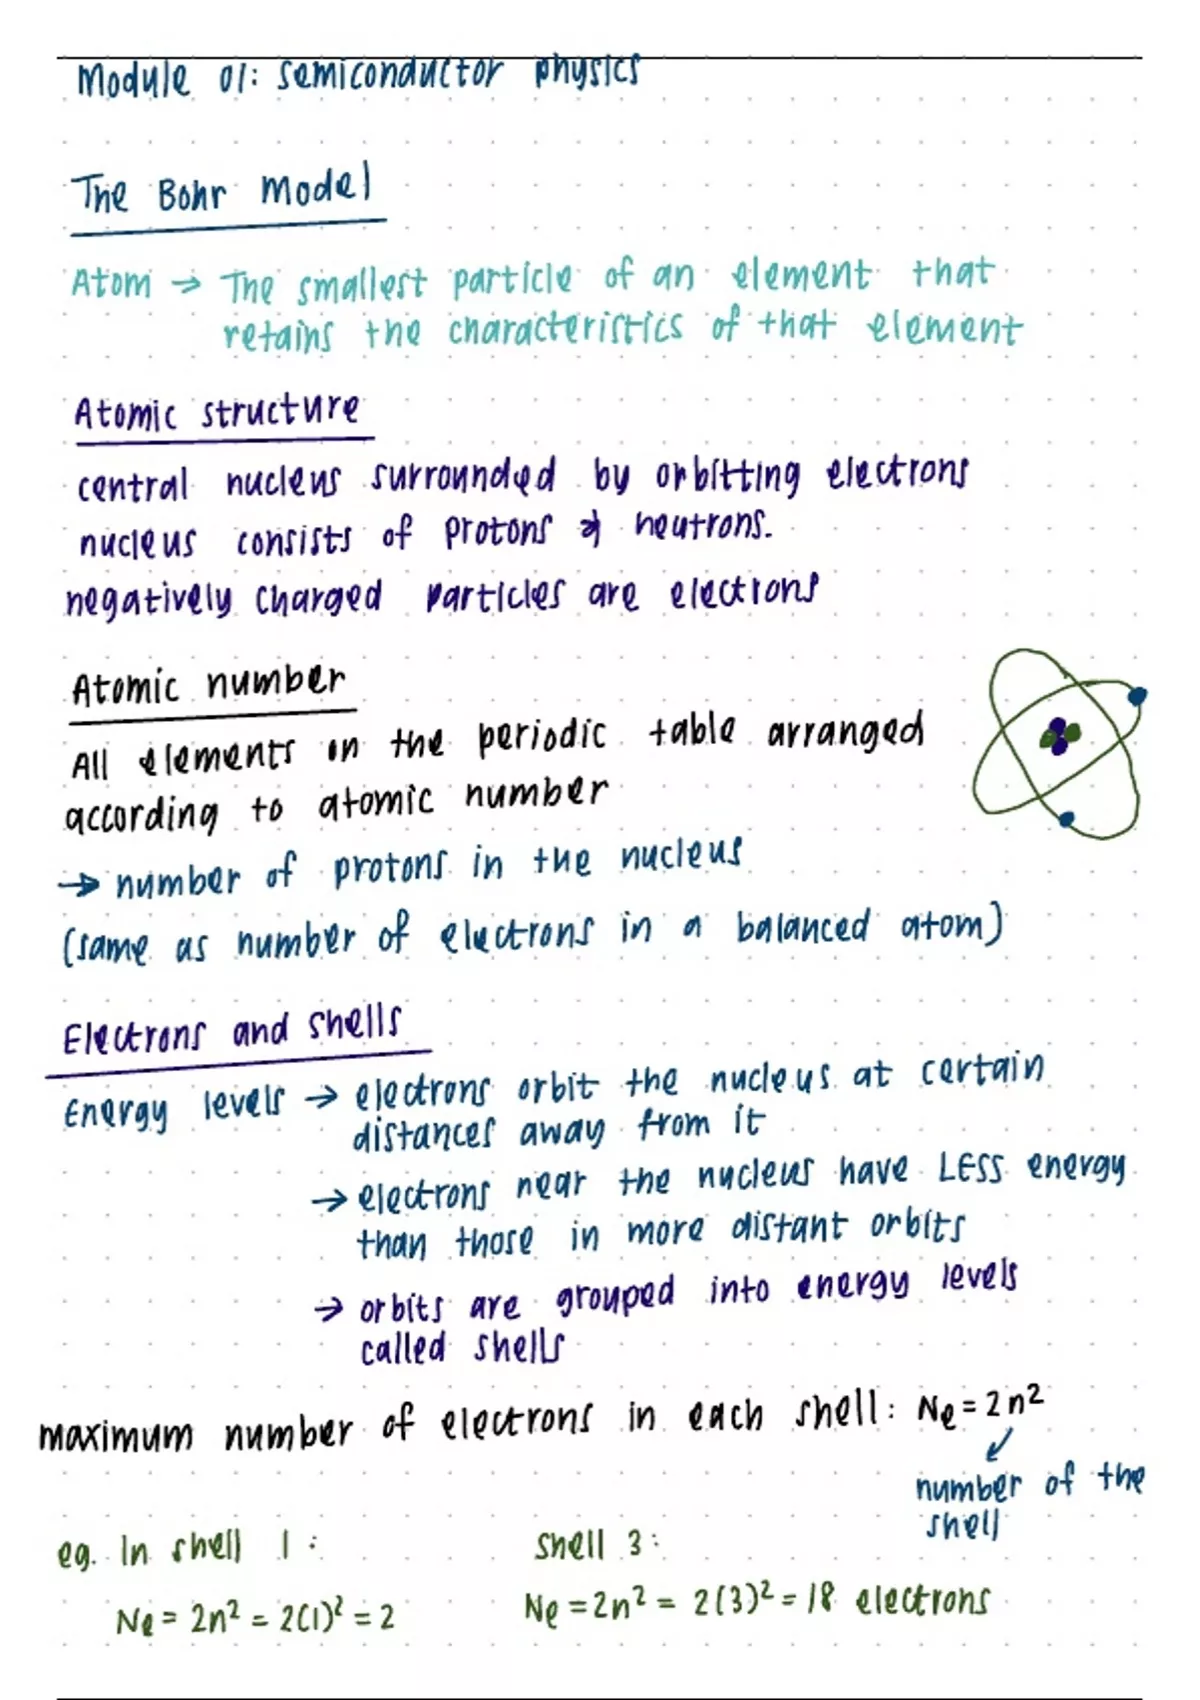 Module 01: Semiconductor physics
The Bohr Model
Atom → The smallest particle of an element that
retains the characteristics of that element
Atomic structure
central nucleus surrounded by orbitting electrons
nucleus consists of protons & neutrons.
negatively charged particles are electrons
Atomic number
All elements in the periodic table arranged
according to atomic number
→ number of protons in the nucleus
(same as number of electrons in a balanced atom)
Electrons and shells
Energy levels → electrons orbit the nucleus at certain
distances away from it
→ electrons near the nucleus have LESS energy
than those in more distant orbits
→ orbits are grouped into energy levels
called shells
maximum number of electrons in each shell: Ne = 2n²
number of the
shell
eg. In shell 1 : shell 3 :
Ne = 2n² = 2(1)² = 2 Ne = 2n² = 2(3)² = 18 electrons